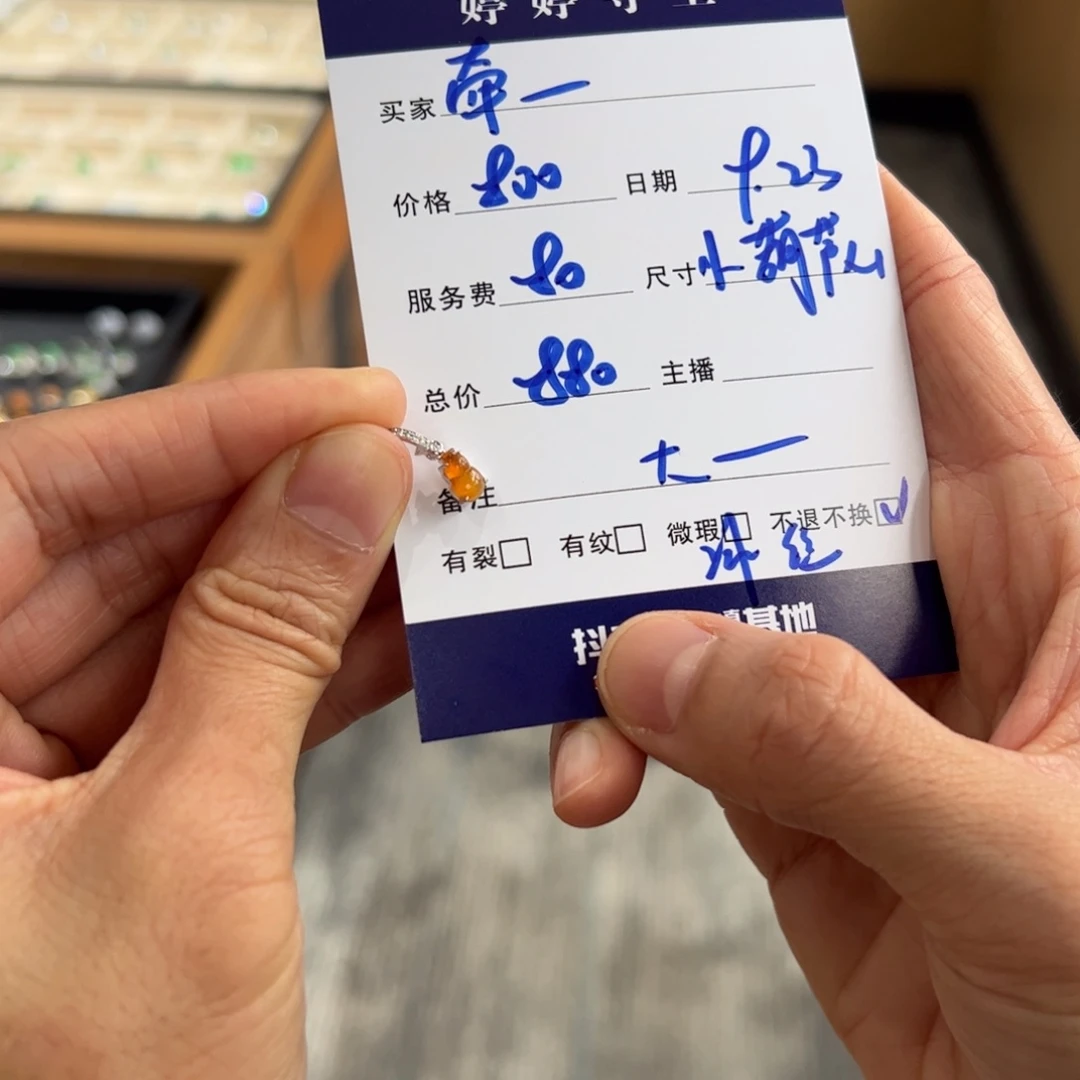 婷婷守玉
买家 牵一
价格 800 日期 9.23
服务费 80 尺寸 小葫芦
总价 880 主播
备注 大一
有裂□ 有纹□ 微瑕□ 不退不换☑
抖 基地